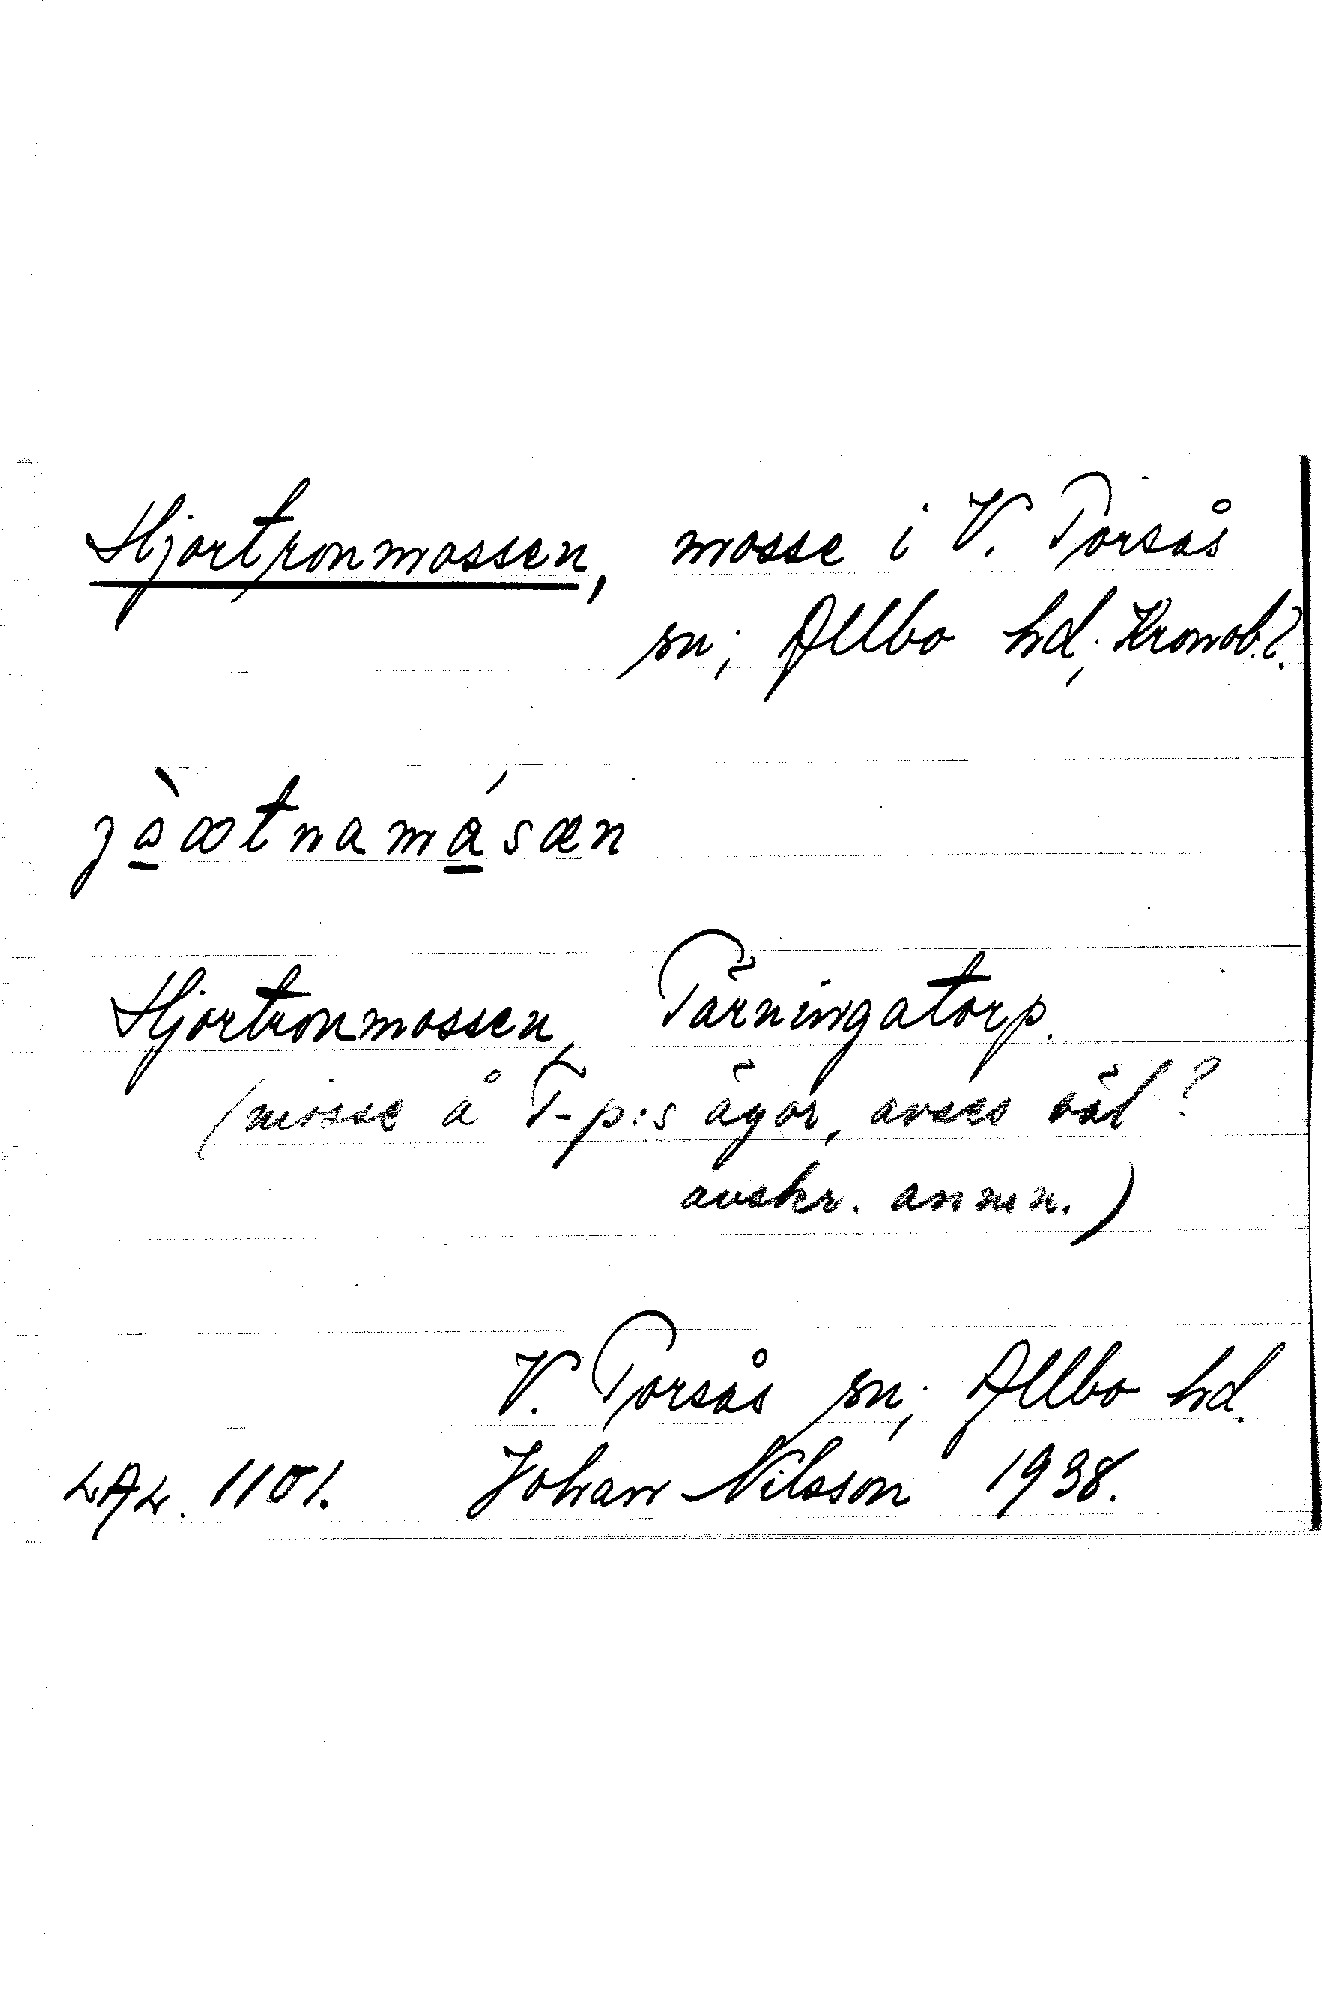 Hjortronmossen, mosse i V. Torsås
sn; Allbo hd; Kronob. l.
Hjortronmossen, Tärningatorp.
(mosse å T-p:s ägor, avses väl?
avskr. anm.)
V. Torsås sn; Allbo hd.
LAL. 1101. Johan Nilsson 1938.